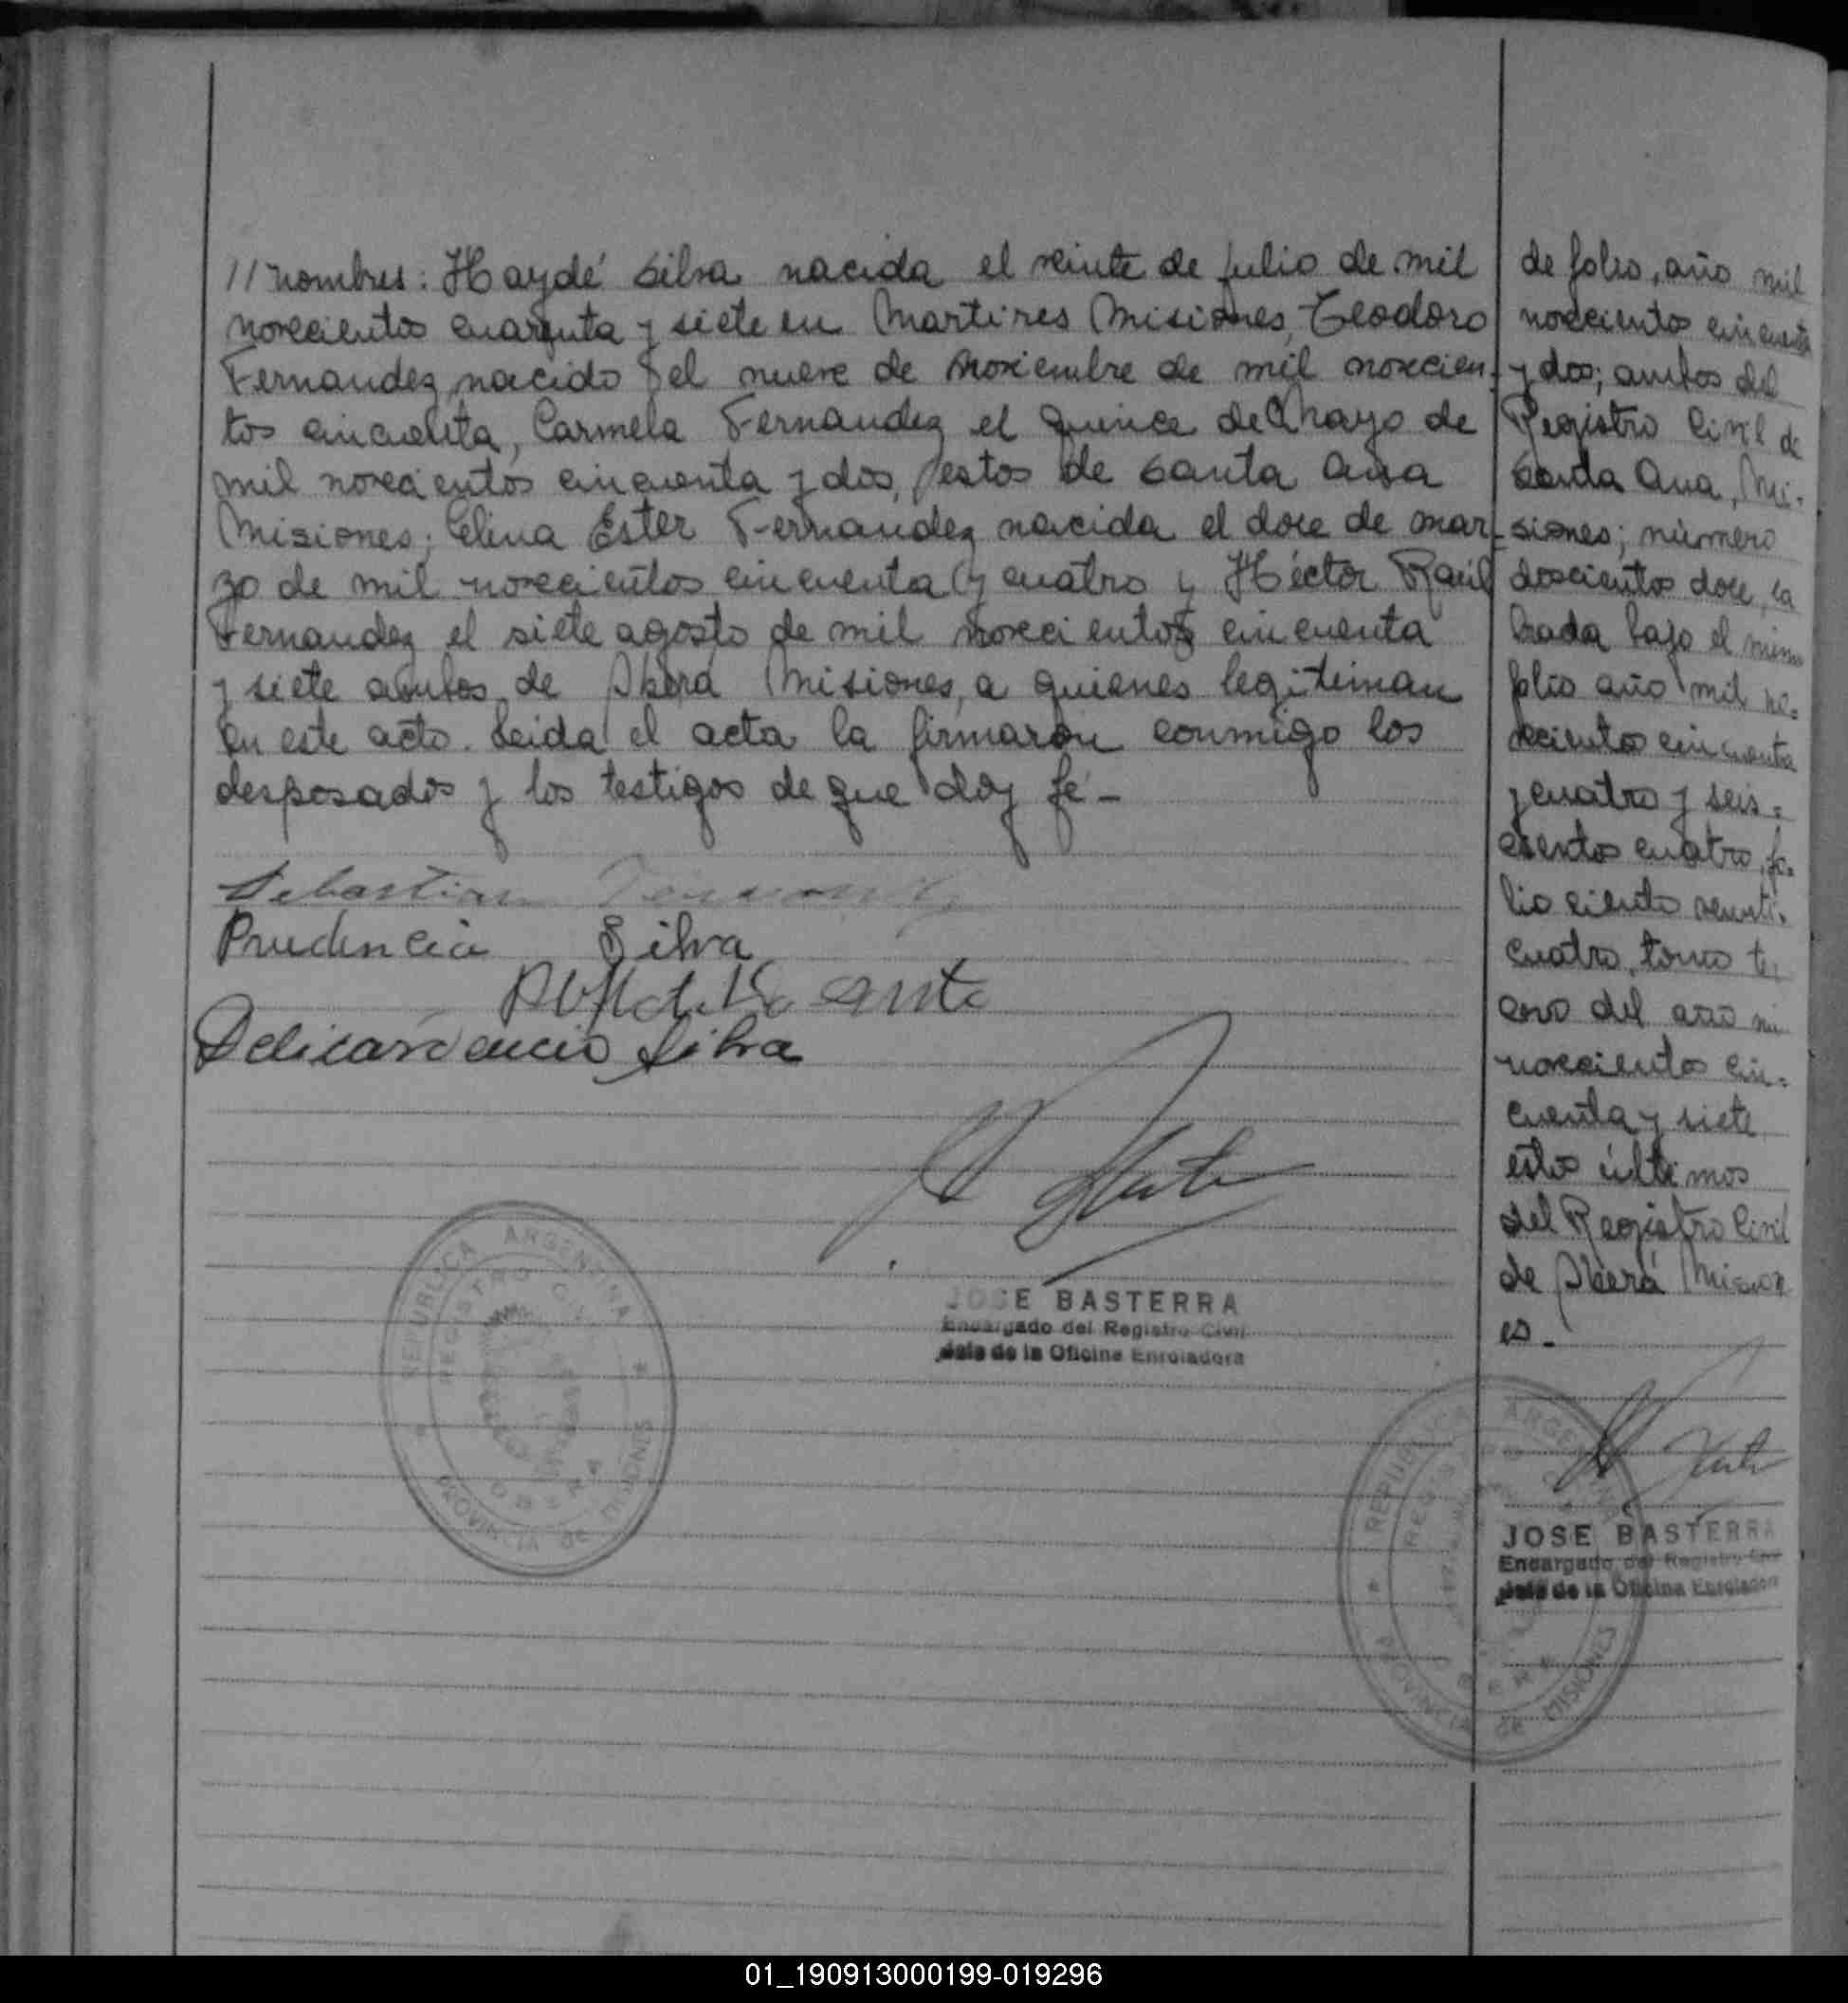 // nombres: Haydé Silva nacida el veinte de julio de mil
novecientos cuarenta y siete en Martires Misiones, Teodoro
Fernandez nacido el nueve de Noviembre de mil novecien-
tos cincuenta, Carmela Fernandez el quince de Mayo de
mil novecientos cincuenta y dos, estos de Santa Ana
Misiones; Elina Ester Fernandez nacida el doce de mar-
zo de mil novecientos cincuenta y cuatro y Héctor Raúl
Fernandez el siete agosto de mil novecientos cincuenta
y siete ambos de Oberá Misiones, a quienes legitiman
en este acto. Leida el acta la firmaron conmigo los
desposados y los testigos de que doy fé-
Sebastian
Prudencia Silva
Silva
JOSE BASTERRA
Encargado del Registro Civil
Jefe de la Oficina Enroladora
REPUBLICA ARGENTINA
REGISTRO CIVIL
OBERA
PROVINCIA de MISIONES
de folio, año mil
novecientos cincuenta
y dos; ambos del
Registro Civil de
Santa Ana, Mi-
siones; número
doscientos doce, la
brada bajo el mismo
folio año mil no-
vecientos cincuenta
y cuatro y seis-
cientos cuatro, fo-
lio ciento veinti-
cuatro, tomo ter
cero del año mil
novecientos cin-
cuenta y siete
estos últimos
del Registro Civil
de Oberá Mision
es-
JOSE BASTERRA
Encargado del Registro Civil
Jefe de la Oficina Enroladora
REPUBLICA ARGENTINA
OBERA
PROVINCIA de MISIONES
01_190913000199-019296